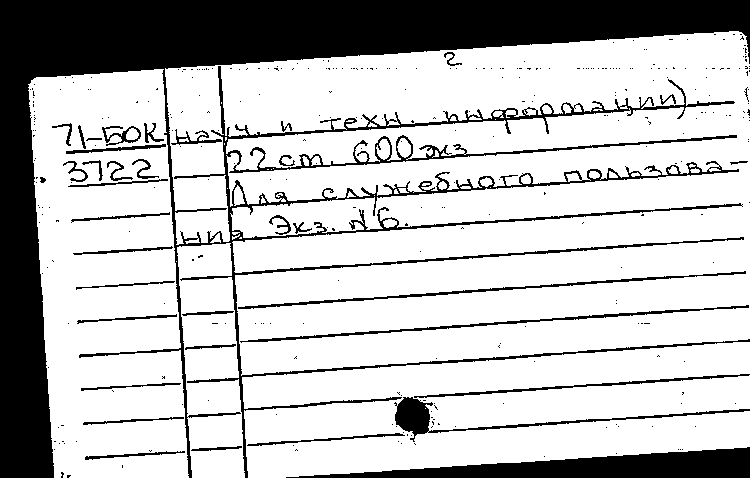 2
71-БОК науч. и техн. информации).
3722 22 ст. 600 экз
Для служебного пользова-
ния. Экз. №6.